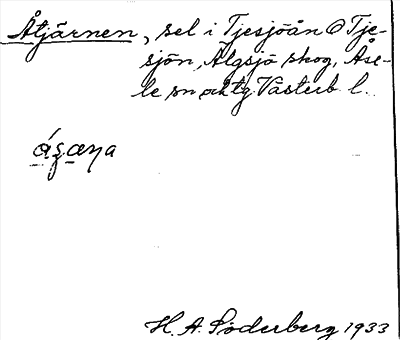 Åtjärnen, sel i Tjesjöån @ Tje-
sjön, Älgsjö skog, Åse-
le sn o ltg Västerb l.
H. A. Söderberg 1933